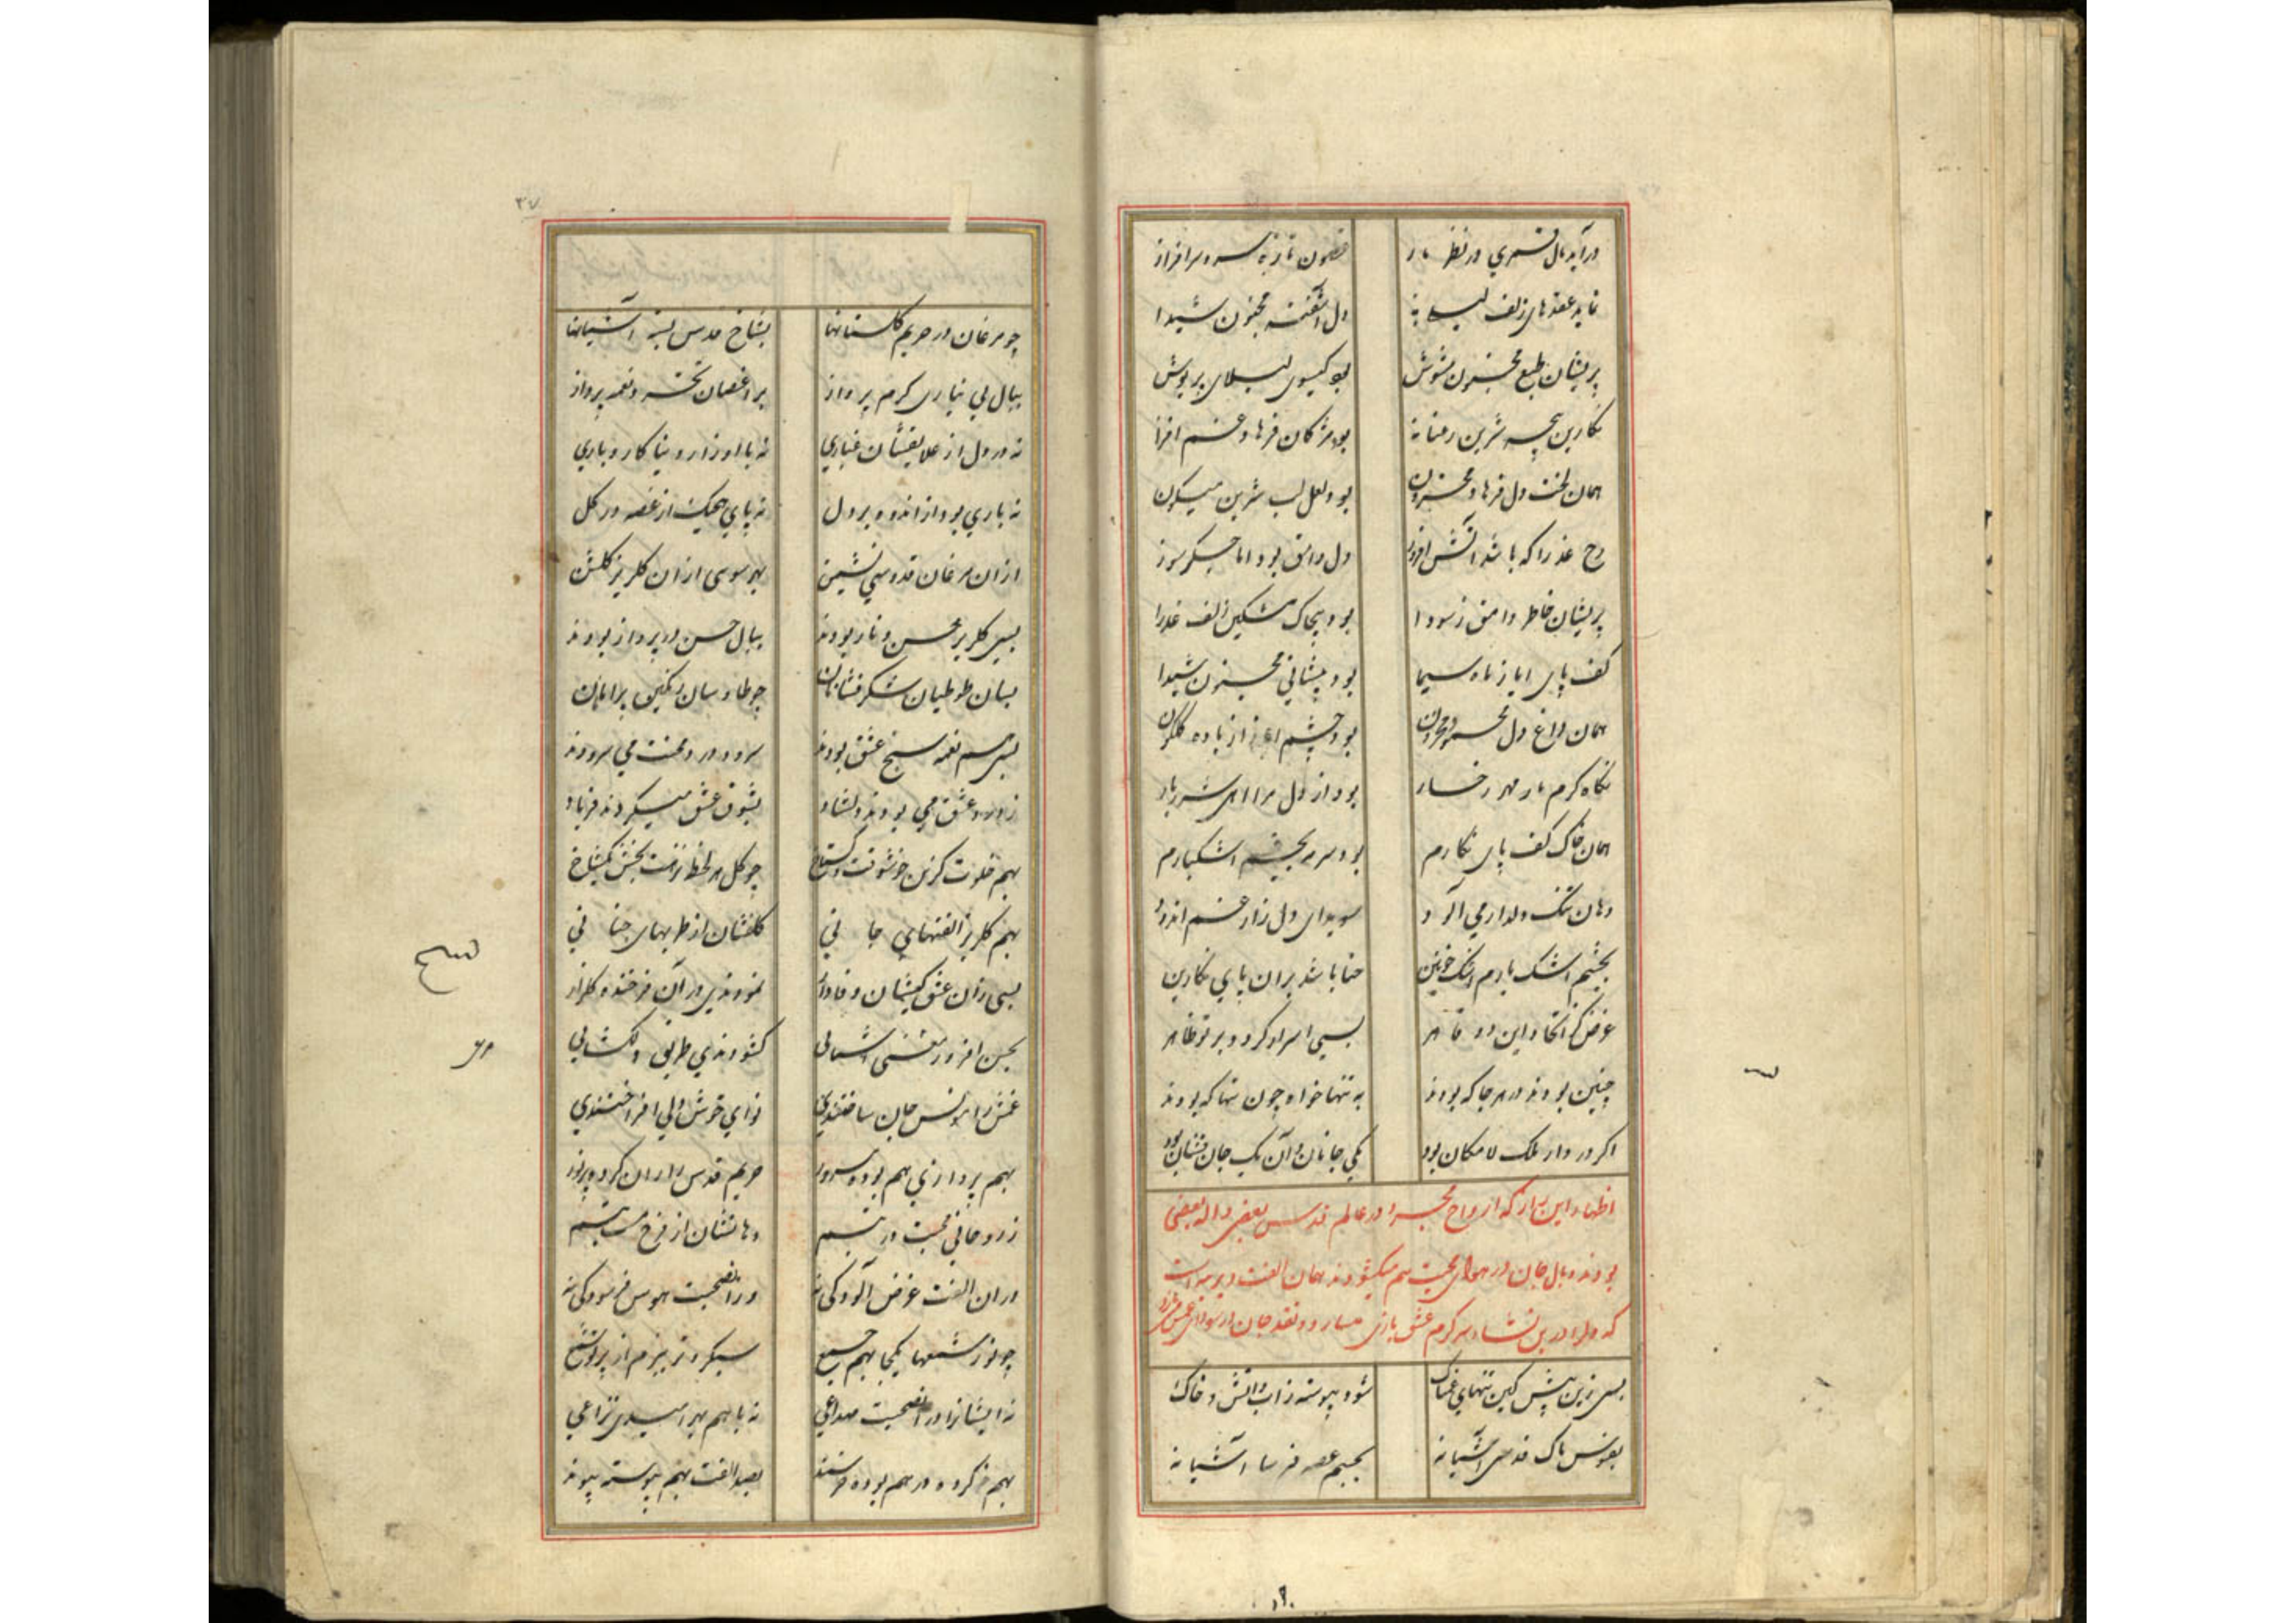 در آید بال قمری در نظر باز
فسون ناز به سرو سرافراز
نماید عقدهای زلف لیلا
دل آشفته مجنون شیدا
پریشان طبع مجنون مشوش
بود گیسوی لیلای پریوش
نگارین پنجه شیرین رعنا
بود مژگان فرهاد غم افزا
همان لخت دل فرهاد محزون
بود لعل لب شیرین میگون
رخ عذرا که باشد آتش افروز
دل وامق بود اما جگرسوز
پریشان خاطر وامق ز سودا
بود پیچاک مشکین زلف عذرا
کف پای ایاز ماه سیما
بود پیشانی محزون شیدا
همان داغ دل محمود محزون
بود چشم ایاز از باده گلگون
نگاه گرم یار مهر رخسار
بود از دل مرا آهی شرربار
همان خاک کف پای نگارم
بود سرمه بچشم اشکبارم
دهان تنگ دلدار می آلود
سویدای دل زار غم اندود
بچشم اشک بارم اشک خونین
حنا باشد بران پای نگارین
غرض کز اتحاد این دو
بسی اسرار گردد بر تو ظاهر
چنین بودند در هر جا که بودند
به تنها خواه چون تنها که بودند
اگر در دار ملک لامکان بود
یکی جانان و آن یک جان فشان بود
اظهار این راز که ارواح مجرد در عالم قدس بعضی واله بعضی
بودند و بال جان در هوای محبت هم میگشودند همان الفت دیرینه است
که دلها درین نشاء سر گرم عشق بازی و نقد جان در سودای
بسی زین پیش کین تنهای غمناک
شود پیوسته ز آب و آتش و خاک
نفوس پاک قدسی آشیانه
بجسم غصه فرسا آشیانه
۳۷
چو مرغان در حریم گلستانها
بشاخ قدس بسته آشیانها
ببال بی نیازی گرم پرواز
بر اغصان تجرد نغمه پرداز
نه در دل از علایقشان غباری
نه با اوزار دنیا کار و باری
نه باری بود از اندوه بر دل
نه پای هیچیک از غصه در گل
ازان مرغان قدوسی نشیمن
بهر سوی ازان گلریز گلشن
بسی گلریز حسن و ناز بودند
ببال حسن در پرواز بودند
بسان طوطیان شکرفشانان
چو طاوسان رنگین پر
بسی هم نغمه سنج عشق بودند
سرود درد و محنت می سرودند
ز درد عشق می بودند دلشاد
بشوق عشق میکردند فریاد
بهم خلوت گزین خوشوقت و گستاخ
چو گل هر لحظه نزهت بخش یکشاخ
بهم گلریز الفتهای جانی
گلفشان از طربهای جنانی
بسی زان عشق کیشان وفادار
نمودندی در آن فرخنده گلزار
بحسن افروز معشقی آشنایی
گشودندی طریق دلگشایی
غمش را مونس جان ساختندی
نوای خوش دلی افراختندی
بهم پردازی هم بوده مسرور
حریم قدس را زان کرده پرنور
ز روحانی محبت در تبسم
دهانشان از فرح مست تبسم
دران الفت غرض آلودگی نه
دران صحبت هوس فرسودگی نه
چو نور شمعها یکجا بهم جمع
سبکروتر ببزم از پرتو شمع
نه ایشانرا دران صحبت صداعی
نه با هم بهر امیدی نزاعی
بهم خو کرده در هم بوده خرسند
بصد الفت بهم پیوسته پیوند